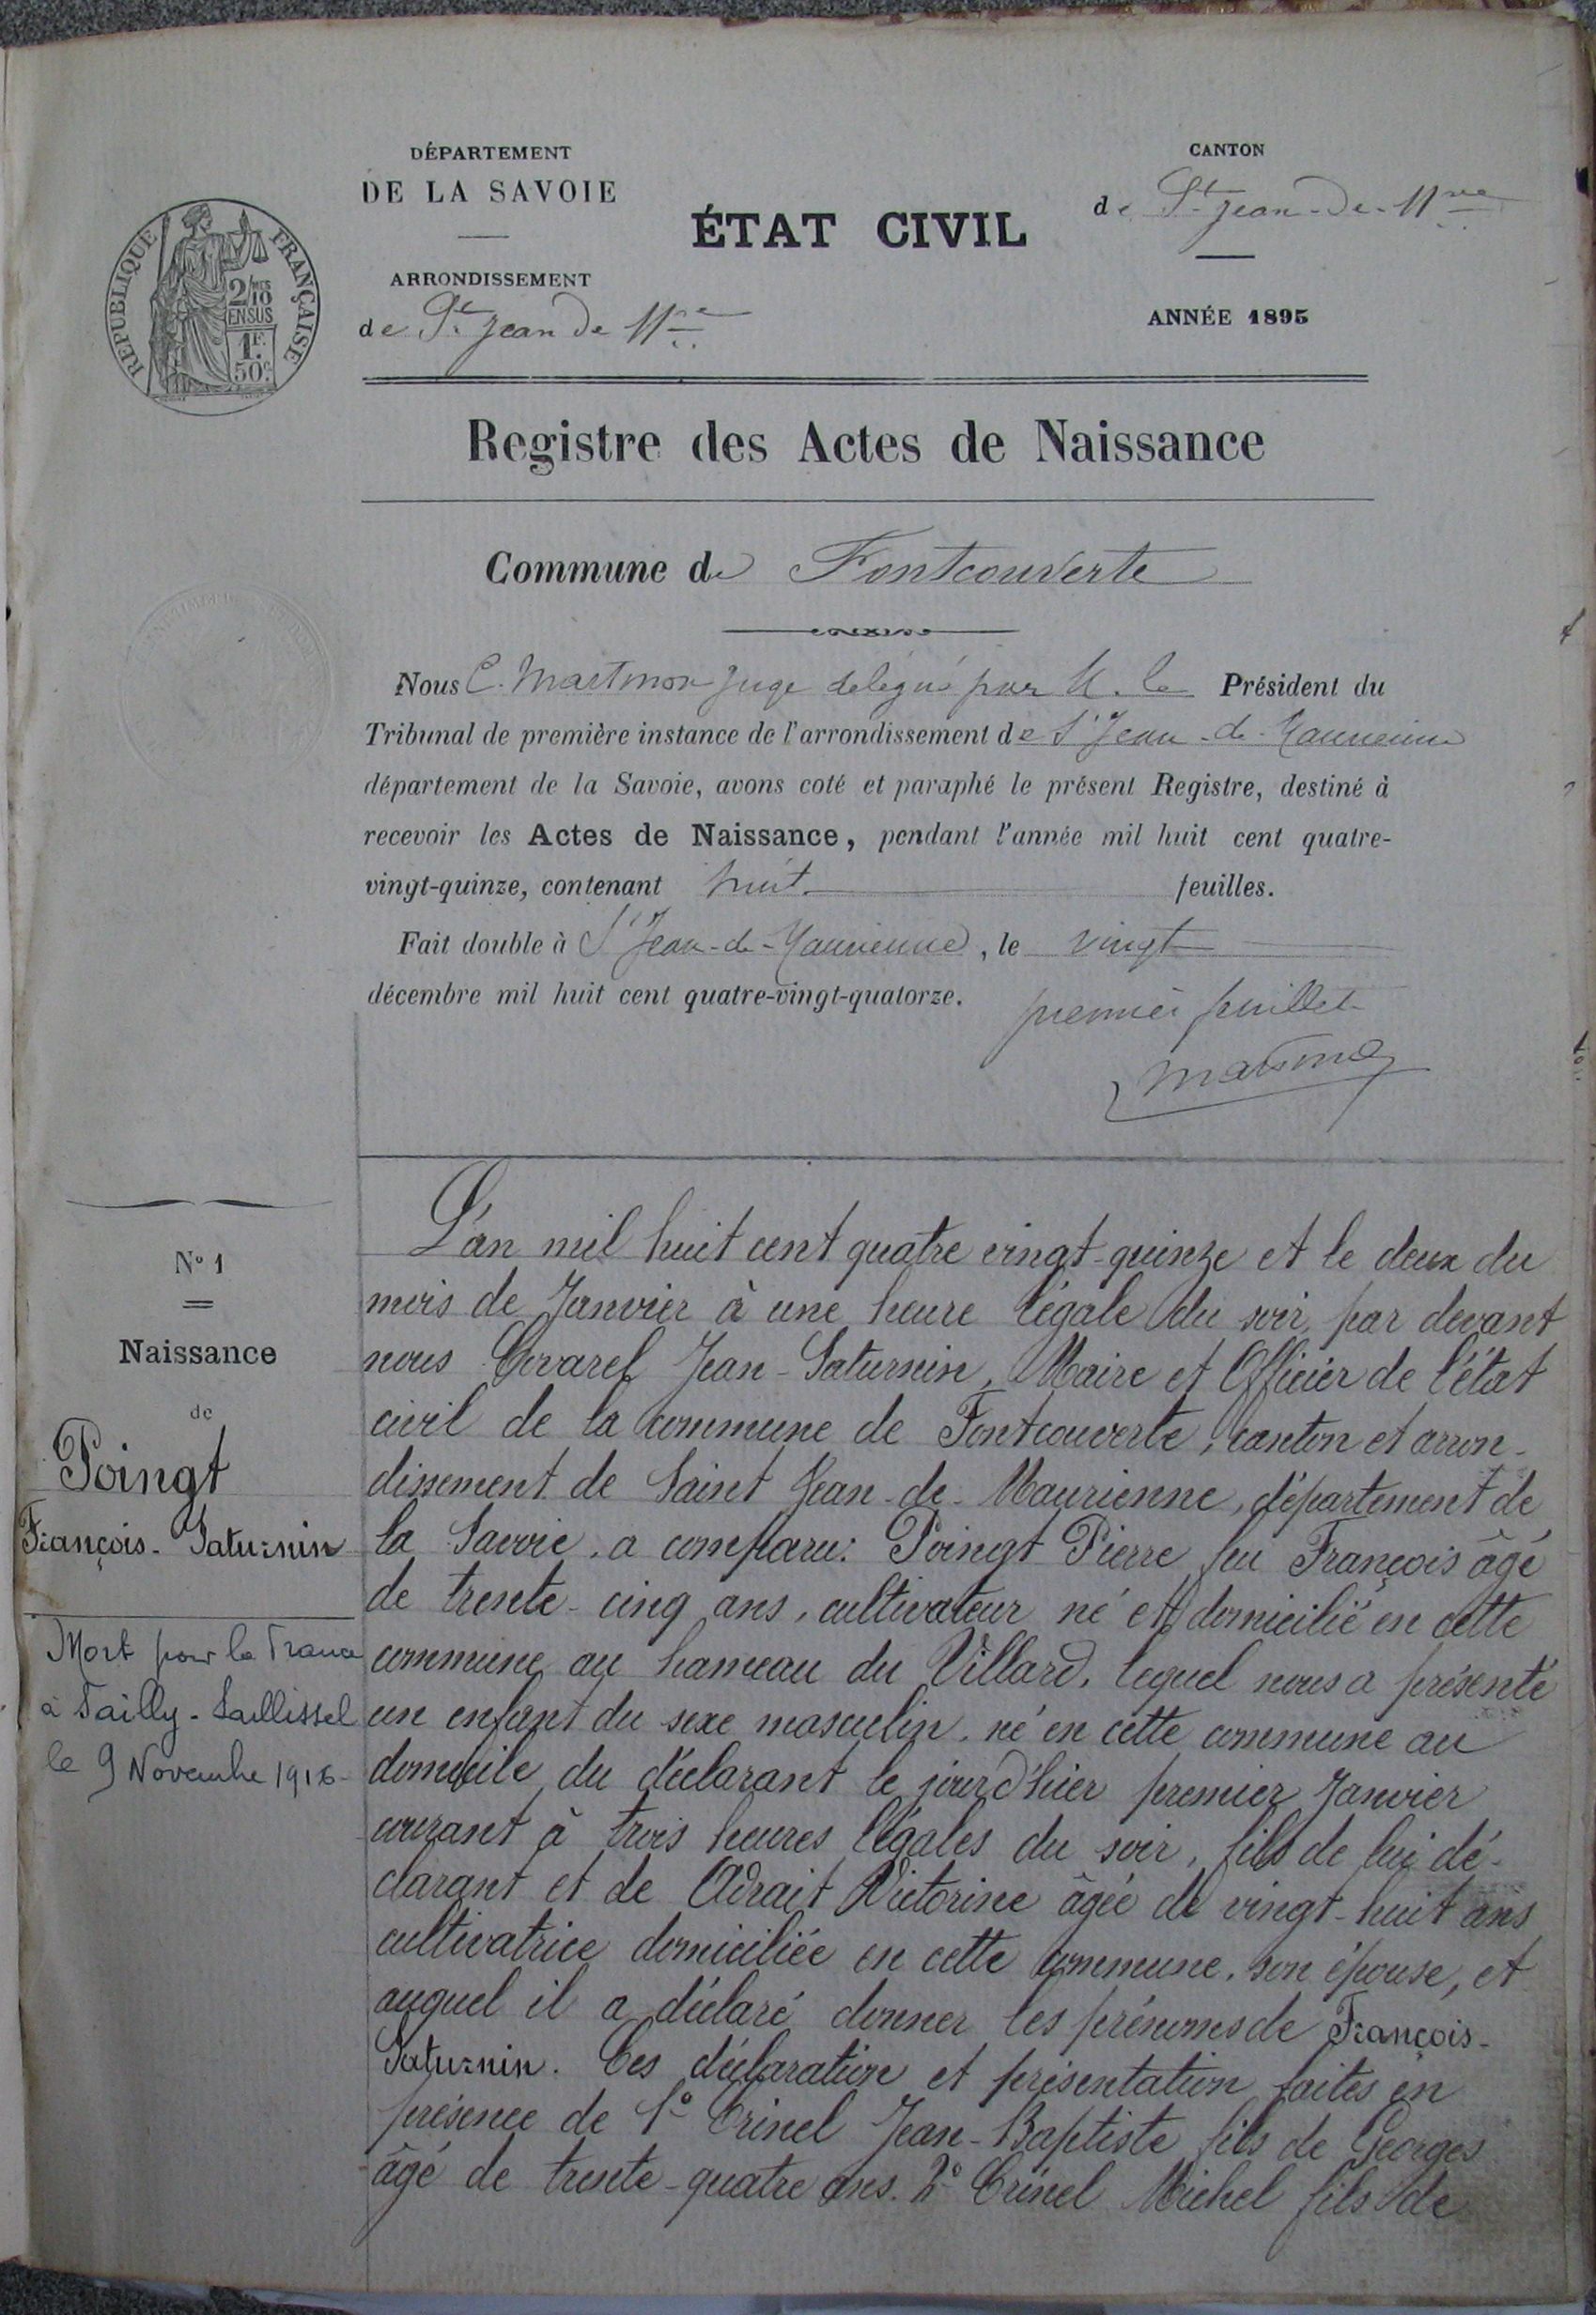 DÉPARTEMENT
DE LA SAVOIE
ARRONDISSEMENT
de St Jean de Mne
ÉTAT CIVIL
CANTON
de St Jean-de-Mne
ANNÉE 1895
REPUBLIQUE FRANÇAISE
2/10 MES
EN SUS
1F.
50c.
Registre des Actes de Naissance
Commune de Fontcouverte
Nous C. juge délégué par M. le Président du
Tribunal de première instance de l'arrondissement de St Jean-de-Maurienne
département de la Savoie, avons coté et paraphé le présent Registre, destiné à
recevoir les Actes de Naissance, pendant l'année mil huit cent quatre-
vingt-quinze, contenant huit feuilles.
Fait double à St Jean-de-Maurienne, le vingt
décembre mil huit cent quatre-vingt-quatorze.
premier feuillet
No 1
Naissance
de
Poingt
François-Saturnin
Mort pour la France
à Sailly-Saillissel
le 9 Novembre 1916
L'an mil huit cent quatre vingt-quinze et le deux du
mois de Janvier à une heure légale du soir, par devant
nous Covarel Jean-Saturnin, Maire et Officier de l'état
civil de la commune de Fontcouverte, canton et arron-
dissement de Saint Jean-de-Maurienne, département de
la Savoie, a comparu: Poingt Pierre feu François âgé
de trente-cinq ans, cultivateur né et domicilié en cette
commune au hameau du Villard, lequel nous a présenté
un enfant du sexe masculin, né en cette commune au
domicile du déclarant le jour d'hier premier Janvier
courant à trois heures légales du soir, fils de lui dé-
clarant et de Adrait Victorine âgée de vingt-huit ans
cultivatrice domiciliée en cette commune, son épouse, et
auquel il a déclaré donner les prénoms de François-
Saturnin. Ces déclaration et présentation faites en
présence de 1° Crinel Jean-Baptiste fils de Georges
âgé de trente-quatre ans. 2° Crinel Michel fils de